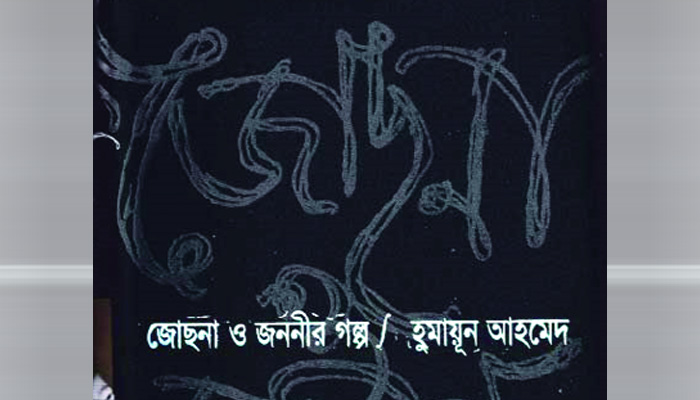 জোছনা
জোছনা ও জননীর গল্প / হুমায়ূন আহমেদ